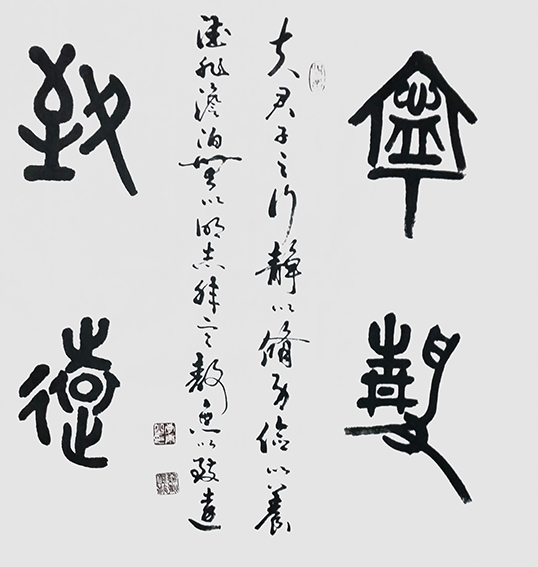 寧靜
夫君子之行靜以脩身儉以養
德非澹泊無以明志非寧靜無以致遠
致遠